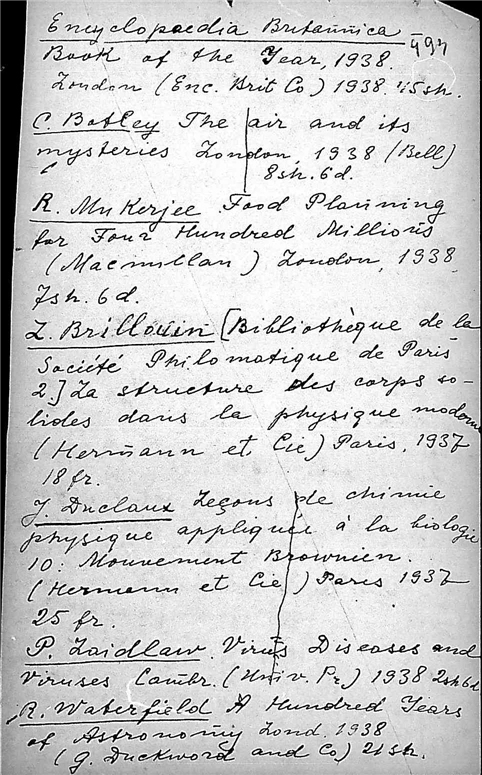 Encyclopaedia Britannica
494
Book of the Year, 1938.
London (Enc. Brit Co) 1938. 15sh.
C. Botley The air and its
mysteries London, 1938 (Bell)
8sh. 6d.
R. Mukerjee Food Planning
for Four Hundred Millions
(Macmillan) London, 1938
7sh. 6d.
L. Brillouin [Bibliothèque de la
Société Philomatique de Paris
2.] La structure des corps so-
lides dans la physique moderne
(Hermann et Cie) Paris, 1937
18 fr.
J. Duclaux Leçons de chimie
physique appliquée à la biologie
10: Mouvement Brownien.
(Hermann et Cie) Paris 1937
25 fr.
P. Laidlaw. Virus Diseases and
Viruses Cambr. (Univ. Pr.) 1938 2sh 6d
R. Waterfield A Hundred Years
of Astronomy Lond. 1938
(G. Duckword and Co) 21sh.